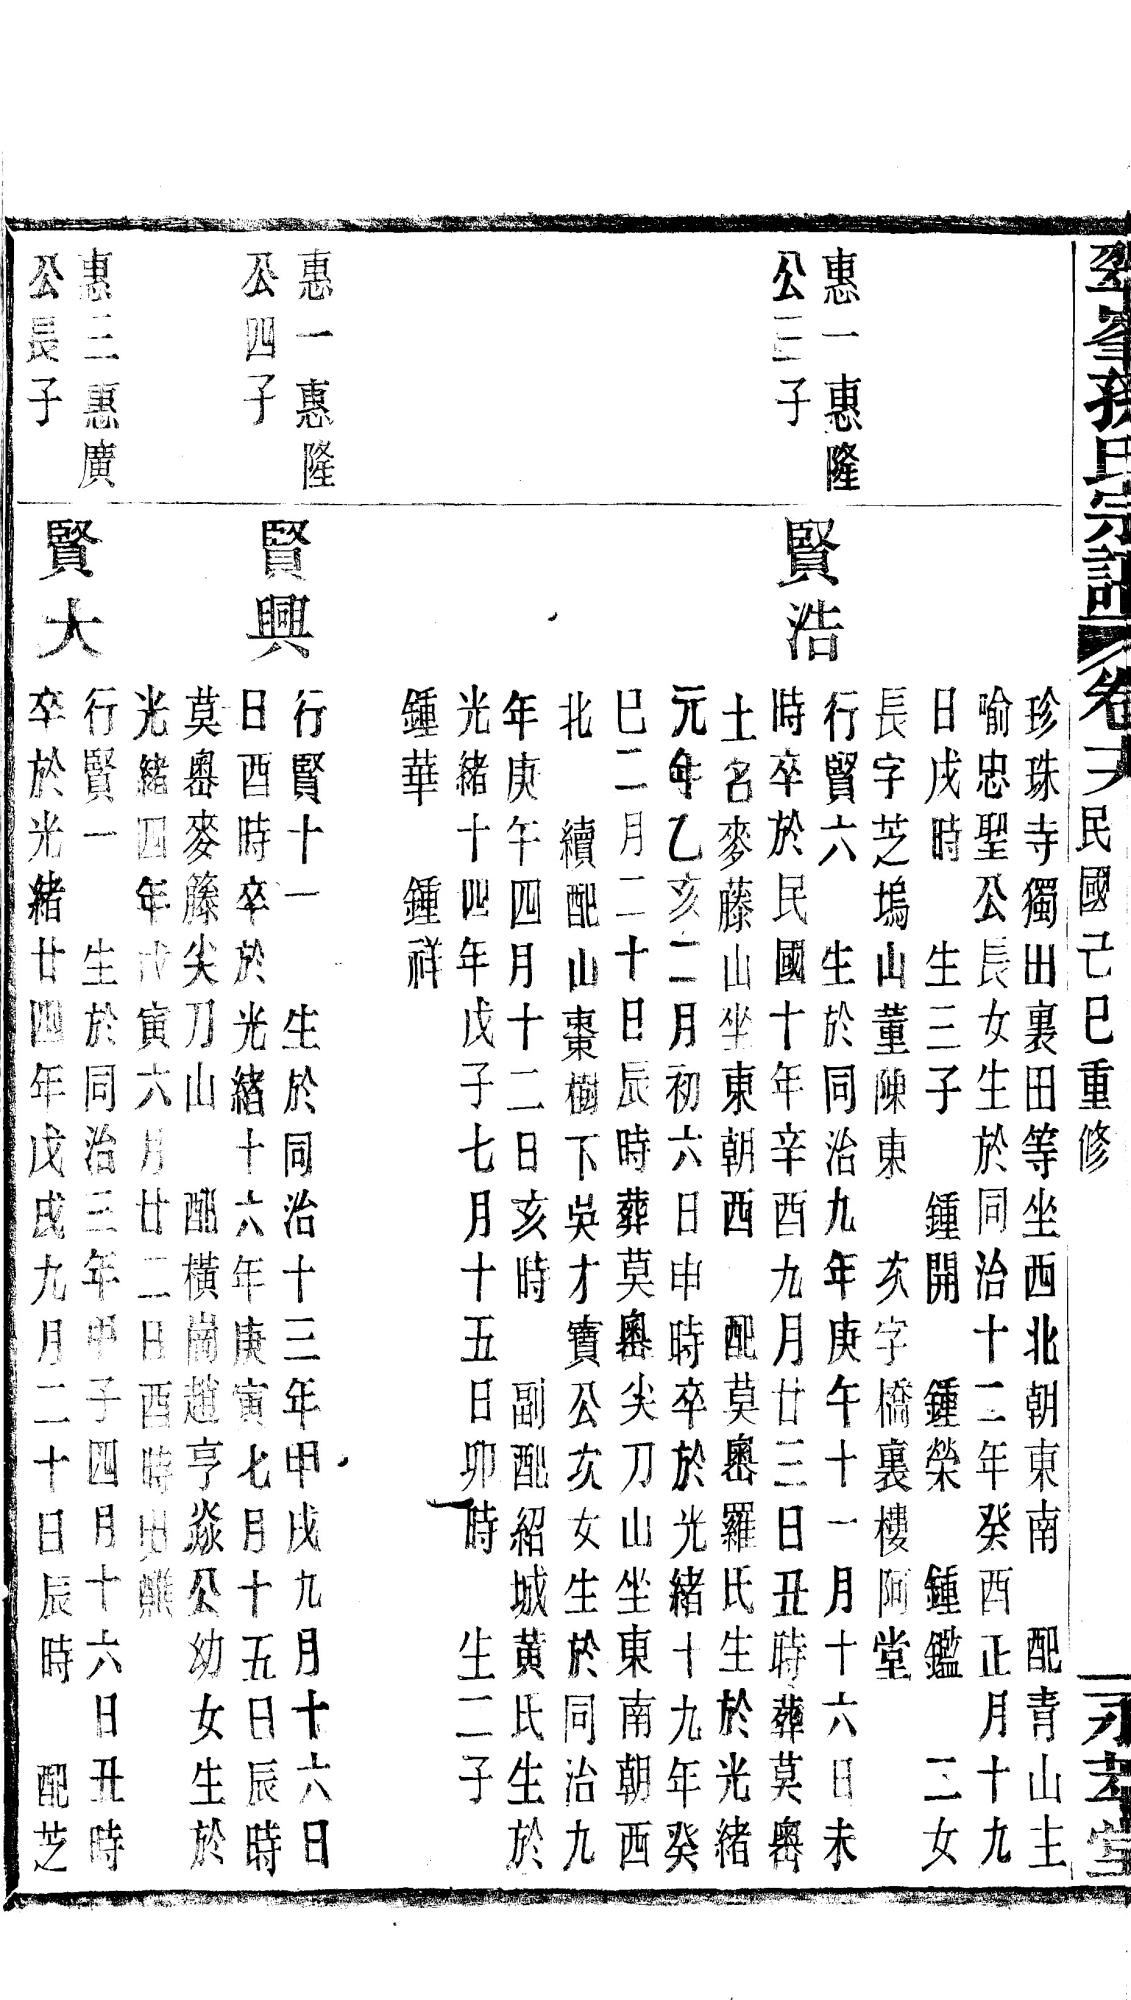 翠峯孫氏宗譜 卷六 民國己巳重修 永孝堂
珍珠寺獨出裏田等坐西北朝東南 配青山主
喻忠聖公長女生於同治十二年癸酉正月十九
日戌時 生三子 鍾開 鍾榮 鍾鑑 二女
長字芝塢山董陳東 次字橋裏樓阿堂
惠一惠隆
公三子
賢浩
行賢六 生於同治九年庚午十一月十六日未
時卒於民國十年辛酉九月廿三日丑時葬莫嶴
土名麥藤山坐東朝西 配莫嶴羅氏生於光緒
元年乙亥二月初六日申時卒於光緒十九年癸
巳二月二十日辰時葬莫嶴尖刀山坐東南朝西
北 續配山棗樹下吳才寶公次女生於同治九
年庚午四月十二日亥時 副配紹城黃氏生於
光緒十四年戊子七月十五日卯時 生二子
鍾華 鍾祥
惠一惠隆
公四子
賢興
行賢十一 生於同治十三年甲戌九月十六日
日酉時卒於光緒十六年庚寅七月十五日辰時
莫嶴麥籐尖刀山 配橫崗趙亨焱公幼女生於
光緒四年戊寅六月廿二日酉時出醮
惠三惠廣
公長子
賢大
行賢一 生於同治三年甲子四月十六日丑時
卒於光緒廿四年戊戌九月二十日辰時 配芝